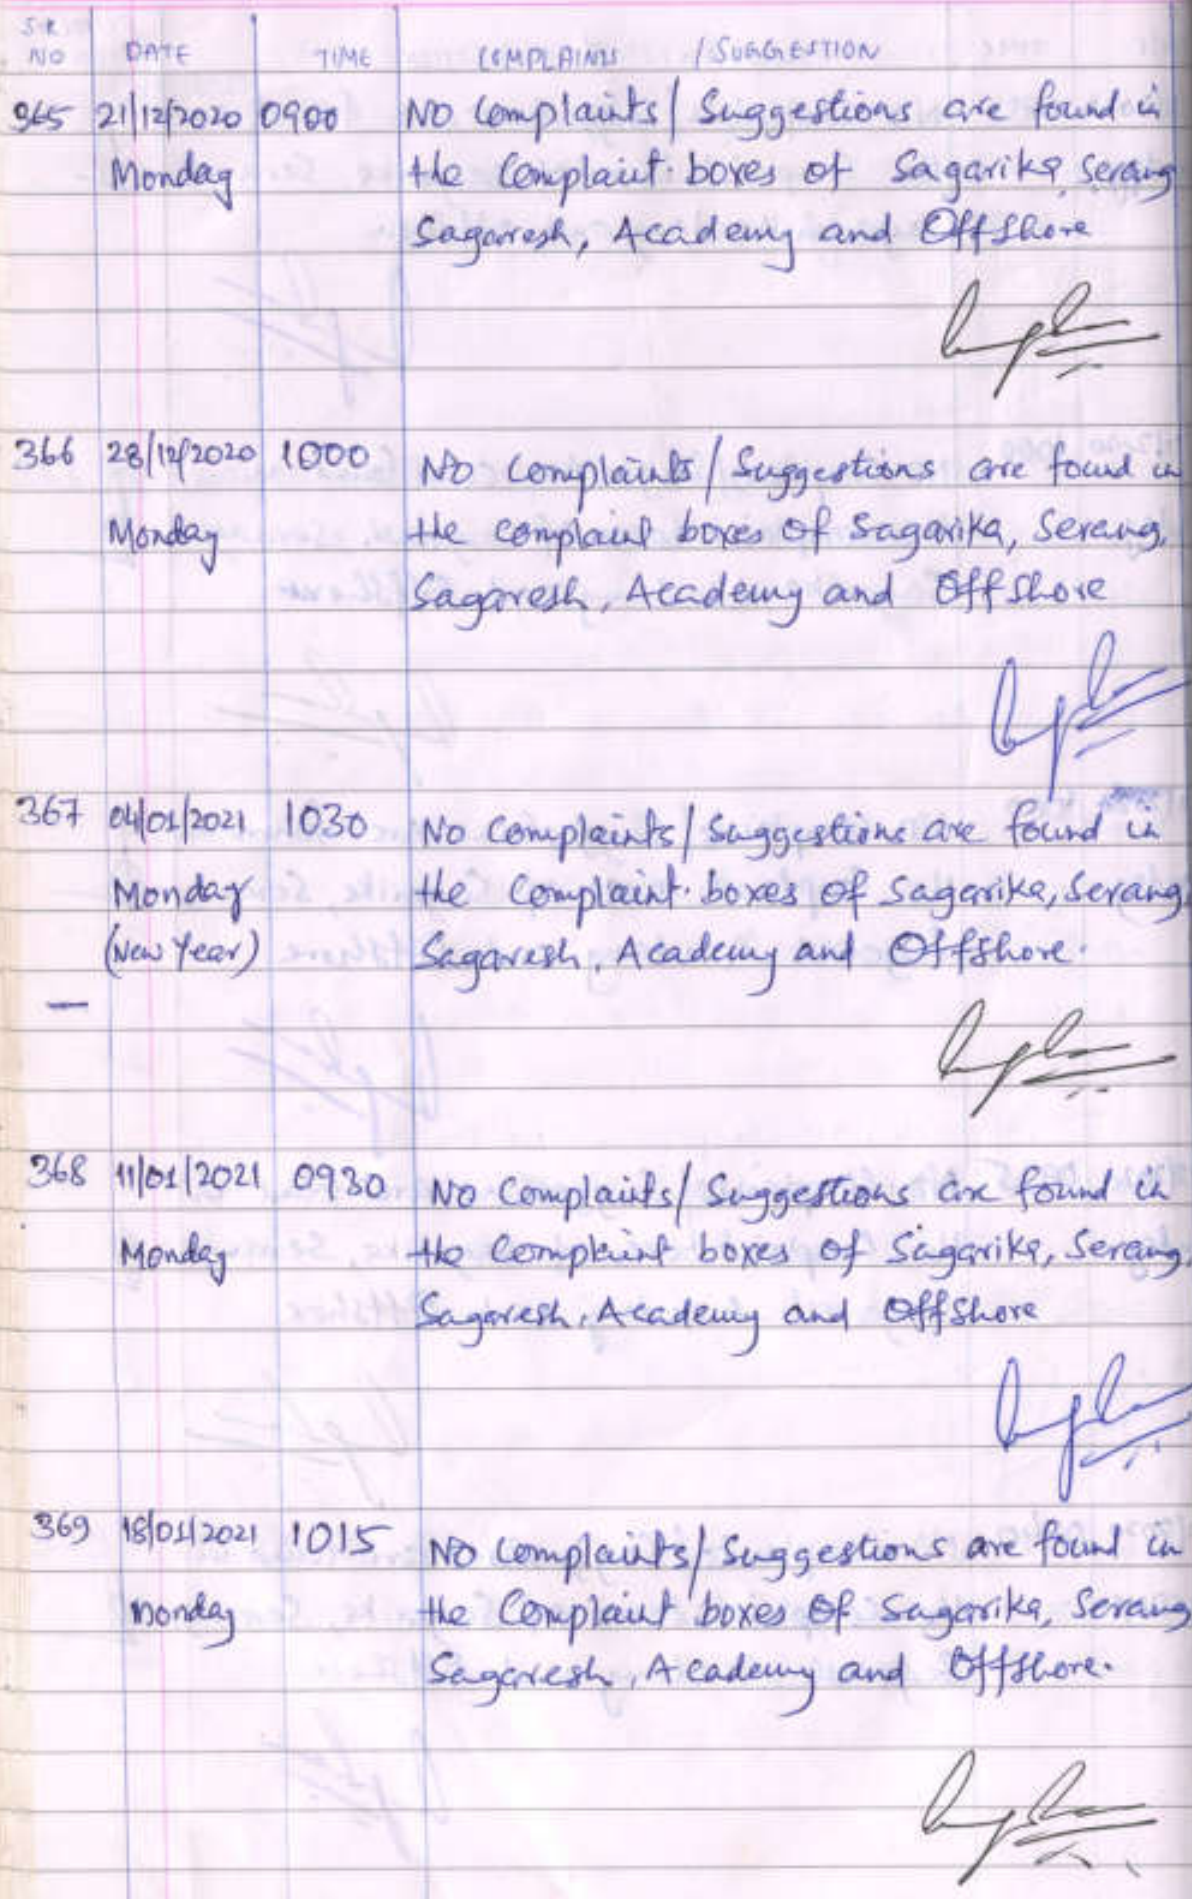 SR NO DATE TIME COMPLAINTS / SUGGESTION
365 21/12/2020 0900 NO Complaints / Suggestions are found in
Monday the Complaint boxes of Sagarika, Serang
Sagaresh, Academy and Offshore
366 28/12/2020 1000 NO Complaints / Suggestions are found in
Monday the complaint boxes of Sagarika, Serang,
Sagaresh, Academy and Offshore
367 04/01/2021 1030 No Complaints / Suggestions are found in
Monday the Complaint boxes of Sagarika, Serang,
(New Year) Sagaresh, Academy and Offshore.
368 11/01/2021 0930 No Complaints / Suggestions are found in
Monday the Complaint boxes of Sagarika, Serang,
Sagaresh, Academy and Offshore
369 18/01/2021 1015 NO Complaints / Suggestions are found in
Monday the Complaint boxes of Sagarika, Serang
Sagaresh, Academy and Offshore.